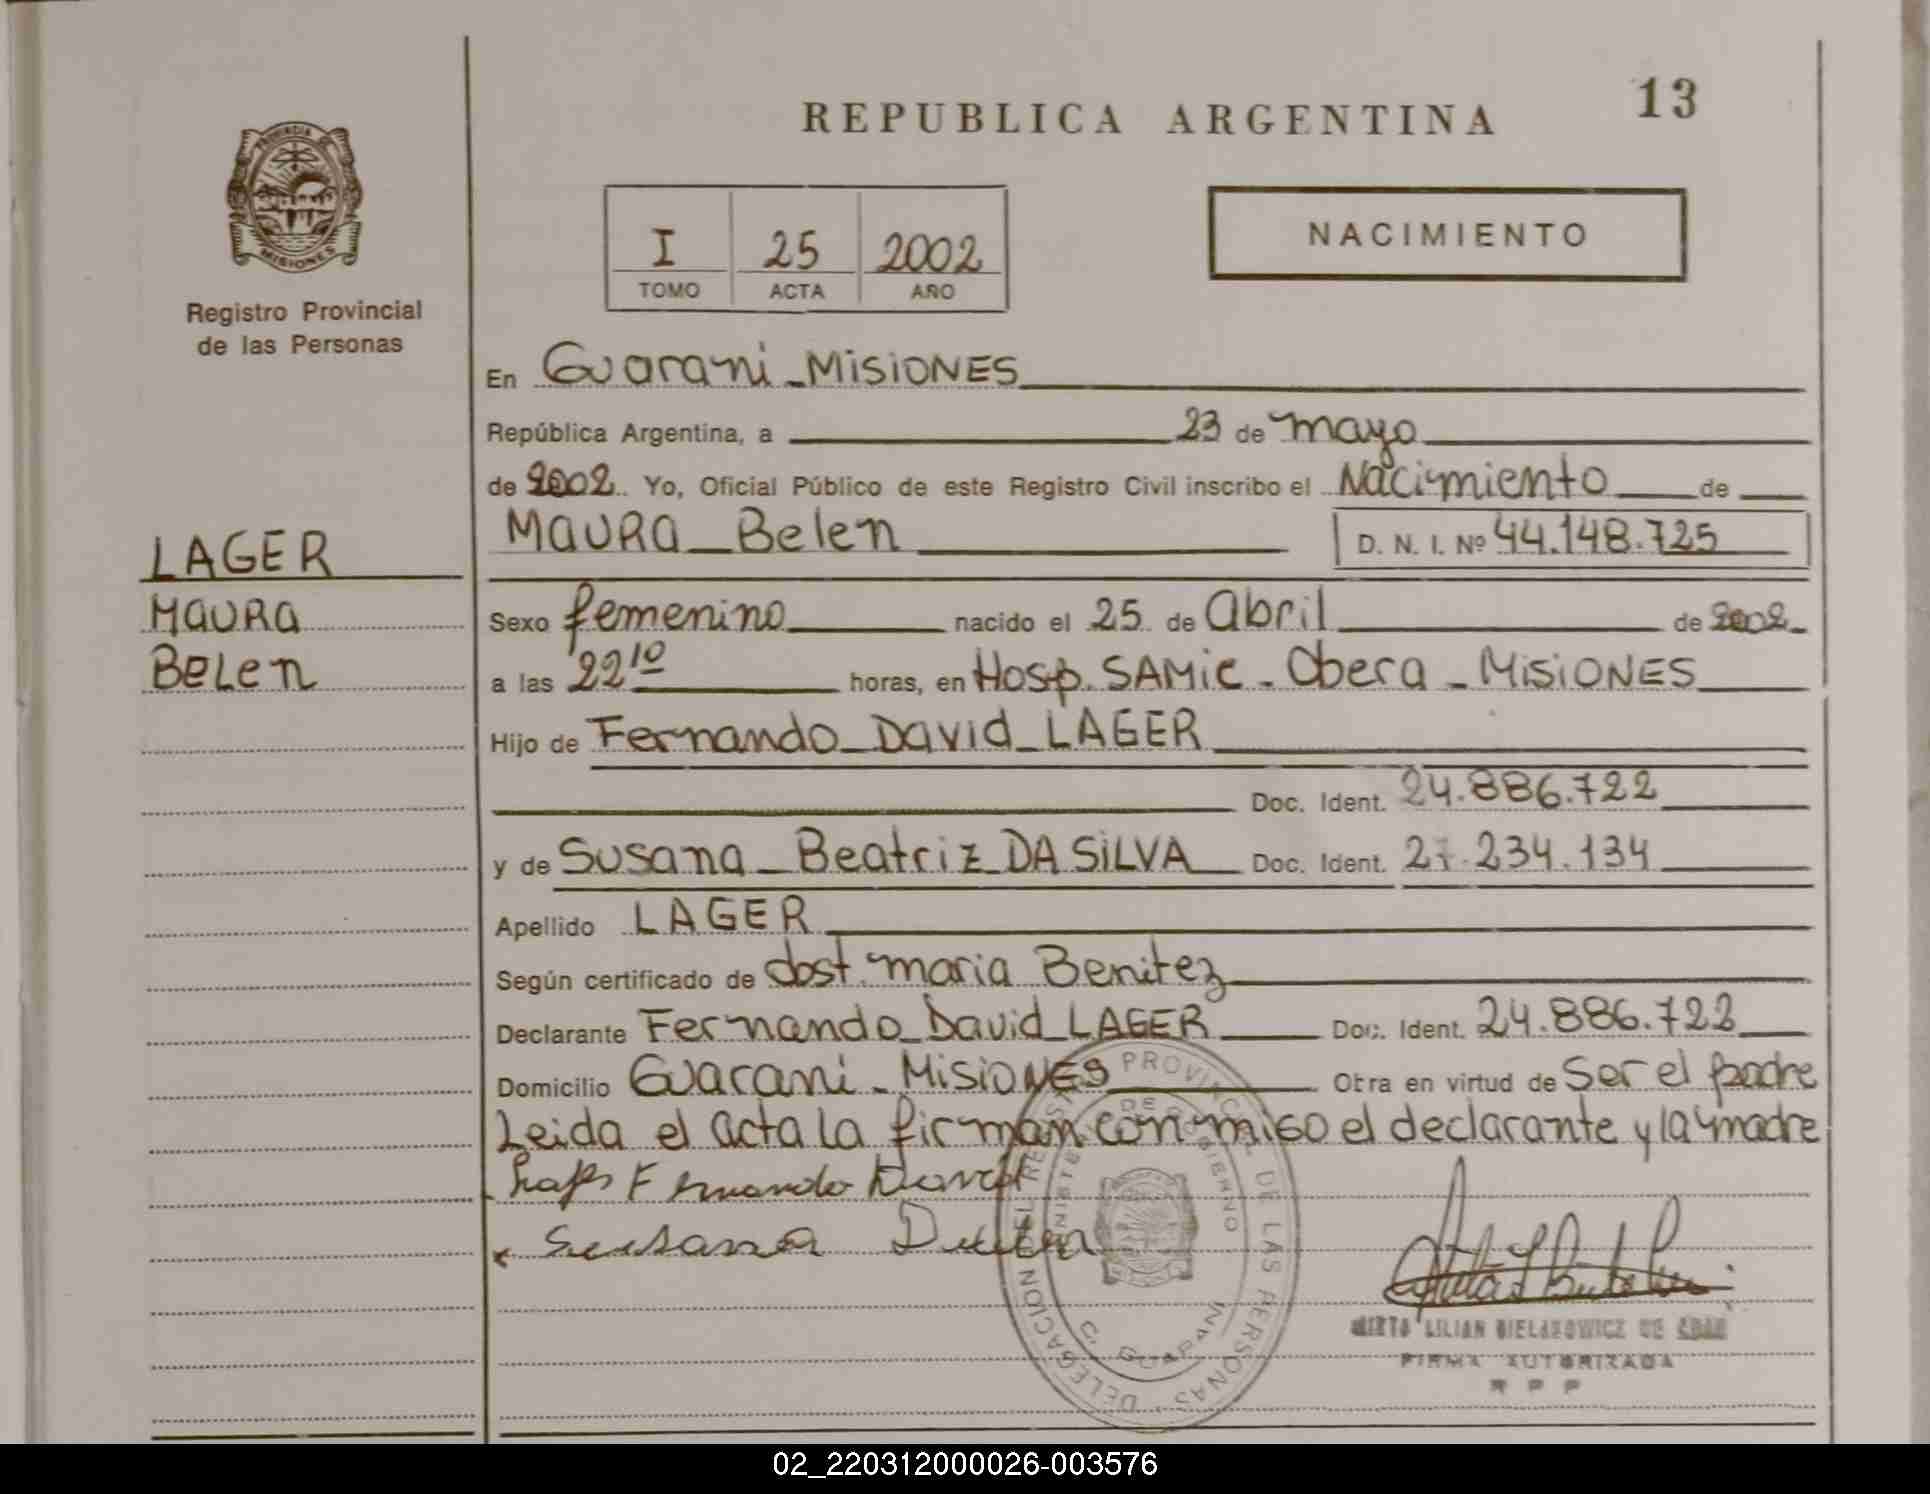 REPUBLICA ARGENTINA
13
PROVINCIA DE
MISIONES
Registro Provincial
de las Personas
I 25 2002
TOMO ACTA AÑO
NACIMIENTO
En Guarani - MiSiONES
República Argentina, a 23 de mayo
de 2002. Yo, Oficial Público de este Registro Civil inscribo el Nacimiento de
MAURA - Belen
D. N. I. Nº 44.148.725
LAGER
MAURA
BeLen
Sexo femenino nacido el 25 de Abril de 2002
a las 22 10 horas, en Hosp. SAMic - Obera - MiSiONES
Hijo de Fernando - David - LAGER
Doc. Ident. 24.886.722
y de Susana - Beatriz DA SiLVA Doc. Ident. 27.234.134
Apellido LAGER
Según certificado de obst. maria Benitez
Declarante Fernando - David - LAGER Doc. Ident. 24.886.722
Domicilio Guarani - MiSiONES Obra en virtud de Ser el padre
Leida el acta la firman conmigo el declarante y la madre
Fernando David
Susana
DELEGACION DEL REGISTRO PROVINCIAL DE LAS PERSONAS
MINISTERIO DE GOBIERNO
C. GUARANI
MIRTA LILIAN BIELAKOWICZ DE
FIRMA AUTORIZADA
R P P
02_220312000026-003576